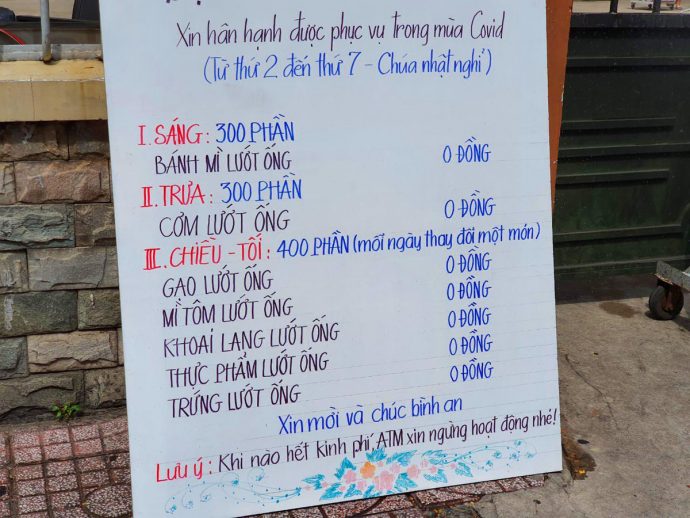 Xin hân hạnh được phục vụ trong mùa Covid
(Từ thứ 2 đến thứ 7 - Chúa nhật nghỉ)
I. SÁNG : 300 PHẦN
BÁNH MÌ LƯỚT ỐNG 0 ĐỒNG
II. TRƯA : 300 PHẦN
CƠM LƯỚT ỐNG 0 ĐỒNG
III. CHIỀU - TỐI : 400 PHẦN (mỗi ngày thay đổi một món)
GẠO LƯỚT ỐNG 0 ĐỒNG
MÌ TÔM LƯỚT ỐNG 0 ĐỒNG
KHOAI LANG LƯỚT ỐNG 0 ĐỒNG
THỰC PHẨM LƯỚT ỐNG 0 ĐỒNG
TRỨNG LƯỚT ỐNG 0 ĐỒNG
Xin mời và chúc bình an
Lưu ý : Khi nào hết kinh phí, ATM xin ngừng hoạt động nhé!